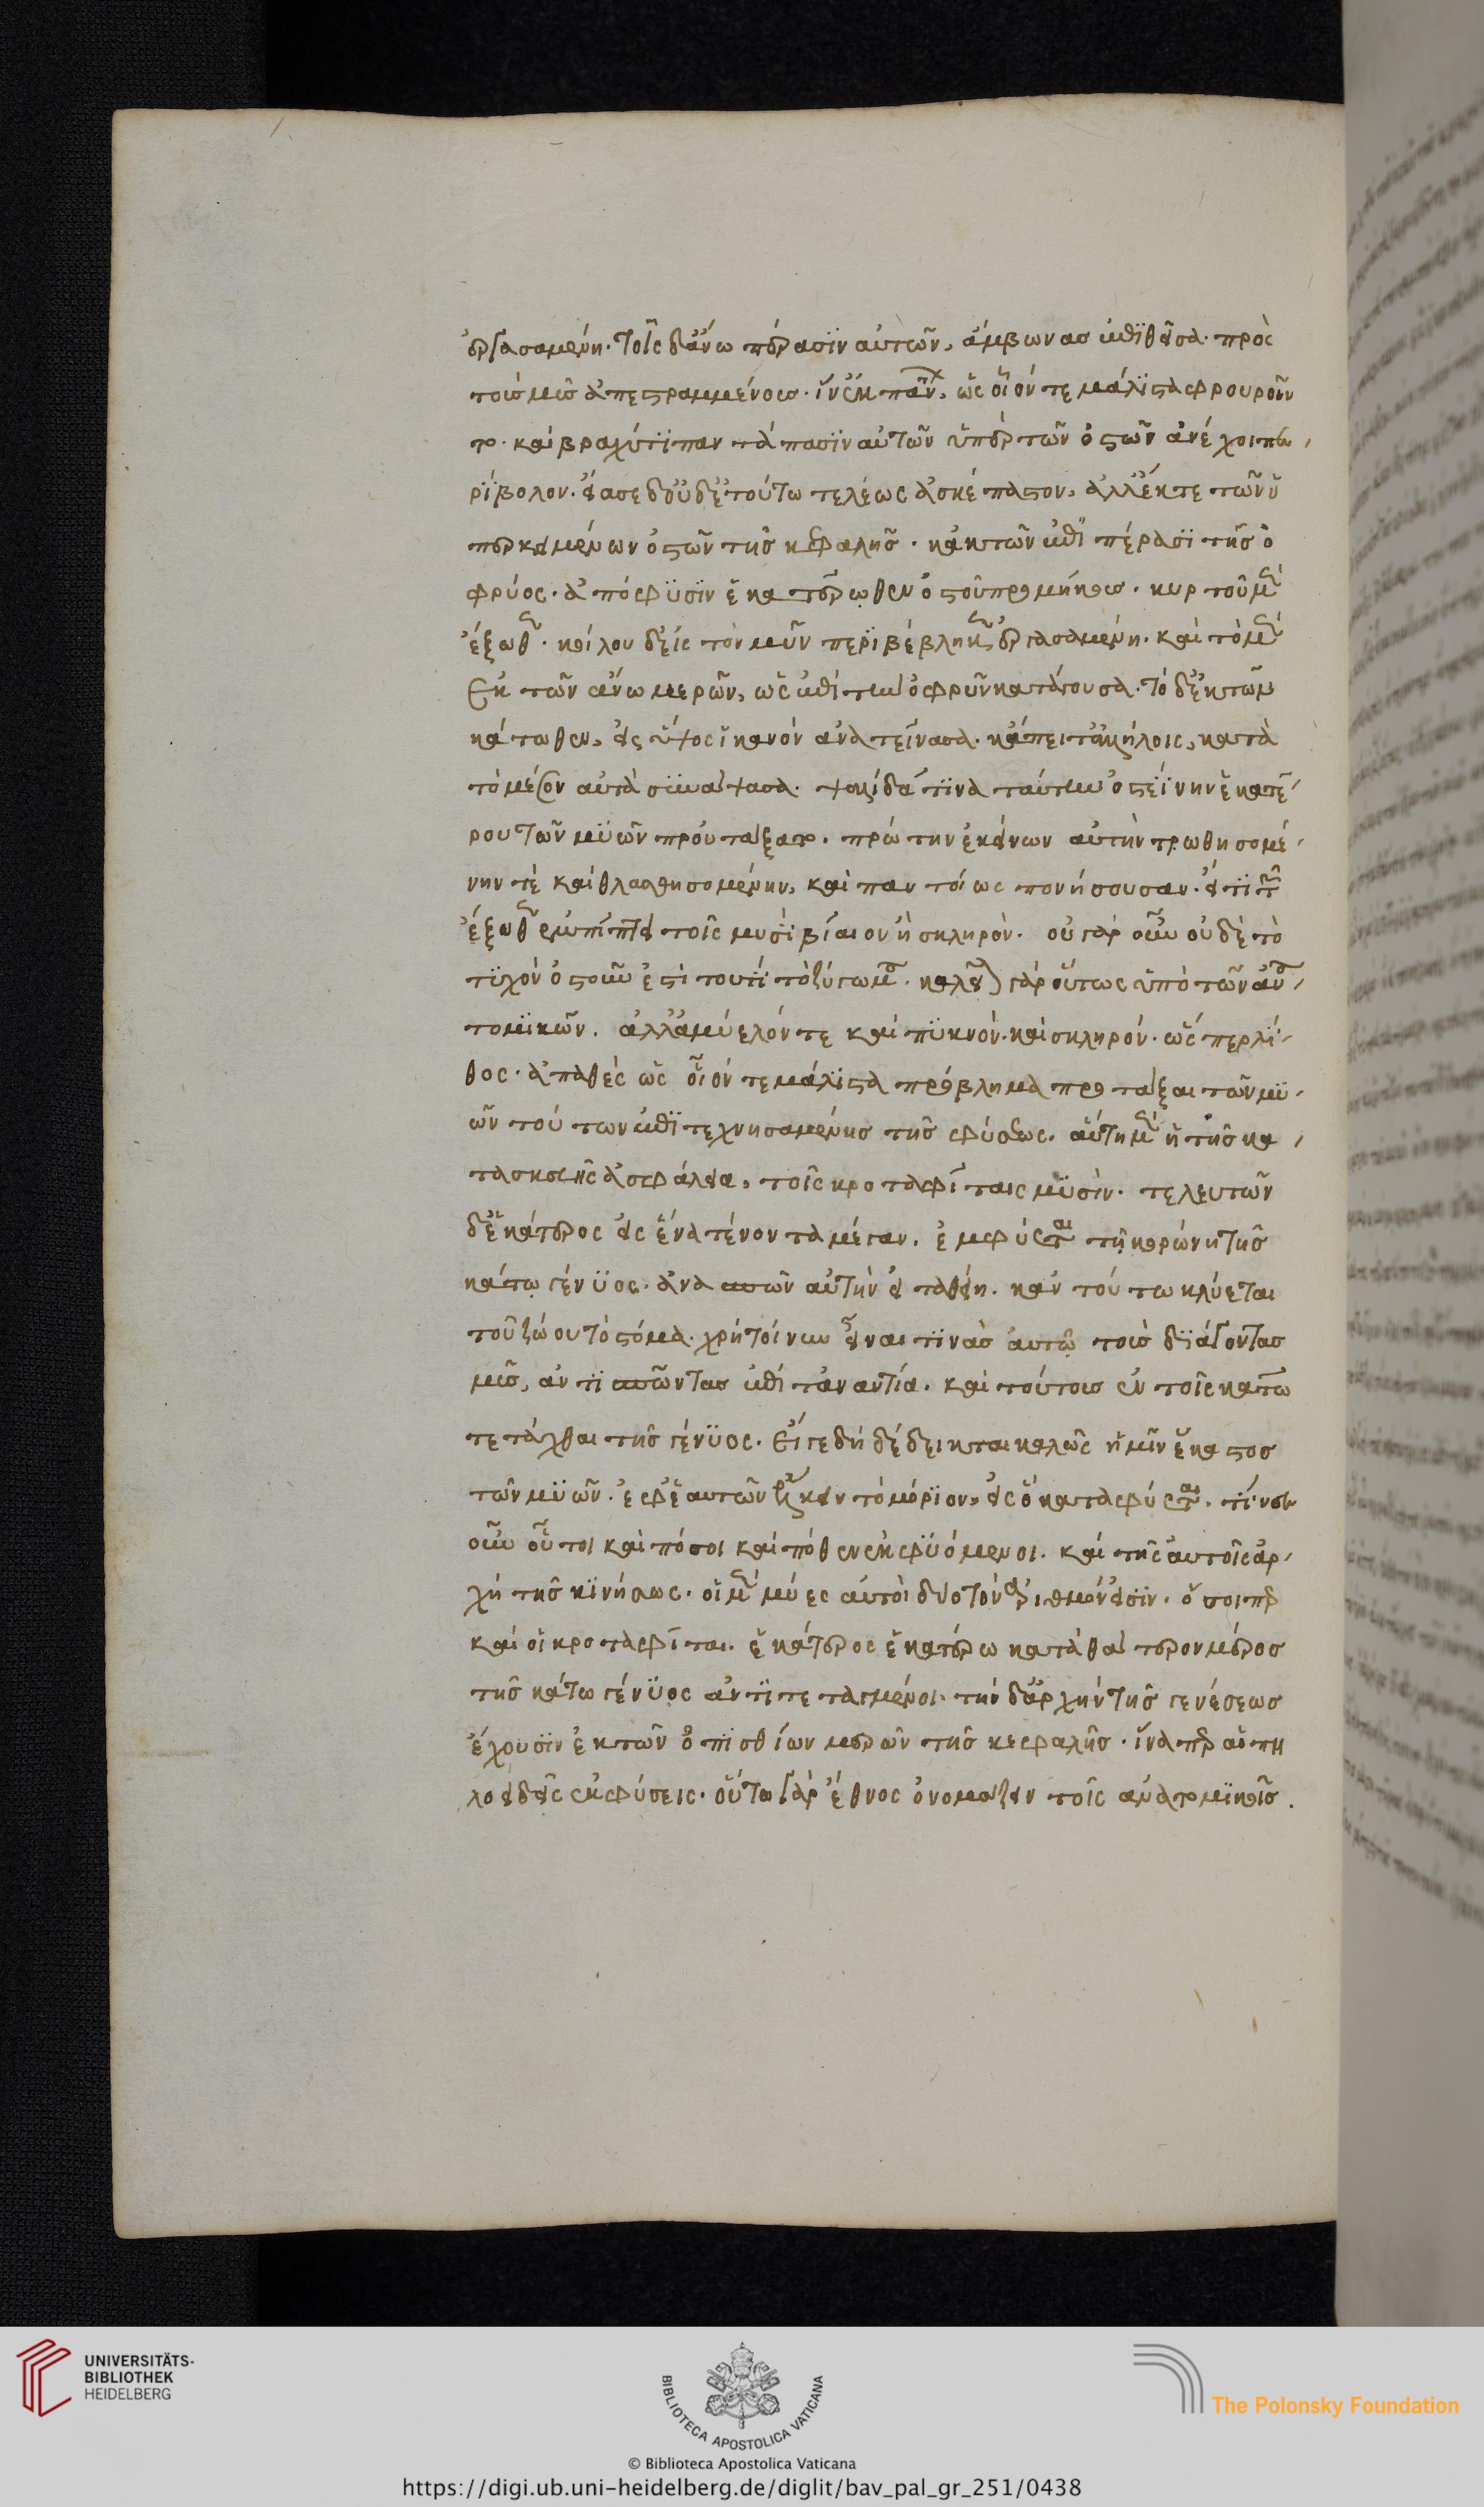 ἐργασαμένη. τοῖς δ' ἄνω πέρασϊν αὐτῶν, ἄμβωνας ἐπϊθεῖσα. πρὸς
τοὺς μῦς ἀπεστραμμένους. ἵν' ἐκ παντ, ὡς οἷόν τε μάλϊστα φρουροῖν
το. καὶ βραχύ τϊ παν τάπασϊν αὐτῶν ὑπὲρ τῶν ὀστῶν ἀνέχοι τὸν πε
ρίβολον. εἴασε δ' οὐδὲ τοῦτο τελέως ἀσκέπαστον, ἀλλ' ἔκ τε τῶν ὑ
περκειμένων ὀστῶν τῆς κεφαλῆς. κἀκ τῶν ἐπὶ πέρασϊ τῆς ὀ
φρύος. ἀπόφϋσϊν ἑκατέρωθεν ὀστοῦ προμήκους. κυρτοῦ μὲν
ἔξωθεν. κοίλου δ' εἰς τὸν μῦν περϊβέβληκεν ἐργασαμένη. καὶ τὸ μὲν
ἐκ τῶν ἄνω μερῶν, ὡς ἐπὶ τὴν ὀφρῦν κατάγουσα. τὸ δ' ἐκ τῶν
κάτωθεν, εἰς ὕψος ἱκανὸν ἀνατείνασα. κἄπειτ' ἀλλήλοις, κατὰ
τὸ μέσον αὐτὰ συνάψασα. ἁψῖδά τϊνα ταύτην ὀστεΐνην ἑκατέ
ρου τῶν μϋῶν προὐτάξατο. πρώτην ἐκείνων αὐτὴν τρωθησομέ
νην τὲ καὶ θλασθησομένην, καὶ παντοίως πονήσουσαν. εἴ τϊ τῶν
ἔξωθεν ἐμπίπτει τοῖς μυσὶ βίαιον ἢ σκληρὸν. οὐ γὰρ οὖν οὐδὲ τὸ
τϋχὸν ὀστοῦν ἐστὶ τουτὶ τὸ ζύγωμα. καλεῖται γὰρ οὕτως ὑπὸ τῶν ἀνα
τομϊκῶν. ἀλλ' ἀμύελόν τε καὶ πϋκνὸν. καὶ σκληρόν. ὥσπερ λί
θος. ἀπαθὲς ὡς οἷόν τε μάλϊστα πρόβλημα προτάξαι τῶν μϋ
ῶν τούτων ἐπϊτεχνησαμένης τῆς φύσεως. αὕτη μὲν ἡ τῆς κα
τασκευῆς ἀσφάλεια, τοῖς κροταφίταις μϋσὶν. τελευτῶν
δ' ἑκάτερος εἰς ἕνα τένοντα μέγαν. ἐμφύεται τῇ κορώνῃ τῆς
κάτω γένϋος. ἀνασπῶν αὐτὴν εἰ ταθείη. κἀν τούτω κλύεται
τοῦ ζώου τὸ στόμα. χρὴ τοίνυν εἶναι τϊνὰς αυτῶ τοὺς διάγοντας
μῦς, ἀντϊσπῶντας ἐπὶ τἀναντία. καὶ τούτους ἐν τοῖς κάτω
τετάχθαι τῆς γένϋος. Εἴγε δὴ δέδεικται καλῶς ἡμῖν ἕκαστος
τῶν μϋῶν. ἐφ' ἑαυτῶν ἕλκειν τὸ μόρϊον, εἰς ὃ καταφύεται. τίνες
οὖν οὗτοι καὶ πόσοι καὶ πόθεν ἐκφϋόμενοι. καὶ τίς αυτοῖς ἀρ
χὴ τῆς κϊνήσεως. οἱ μὲν μύες αὐτοὶ δύο τὸν ἀριθμόν εἰσϊν. ὅσοιπερ
καὶ οἱ κροταφῖται. ἑκάτερος ἑκατέρω κατὰ θάτερον μέρος
τῆς κάτω γένϋος ἀντϊτεταγμένοι. τὴν δ' ἀρχὴν τῆς γενέσεως
ἔχουσϊν ἐκ τῶν ὀπϊσθίων μερῶν τῆς κεφαλῆς. ἵνα περ αἱ στη
λοειδεῖς ἐκφύσεις. οὕτω γὰρ ἔθνος ὀνομάζειν τοῖς ἀνατομϊκοῖς.
UNIVERSITÄTS-
BIBLIOTHEK
HEIDELBERG
BIBLIOTECA APOSTOLICA VATICANA
The Polonsky Foundation
© Biblioteca Apostolica Vaticana
https://digi.ub.uni-heidelberg.de/diglit/bav_pal_gr_251/0438